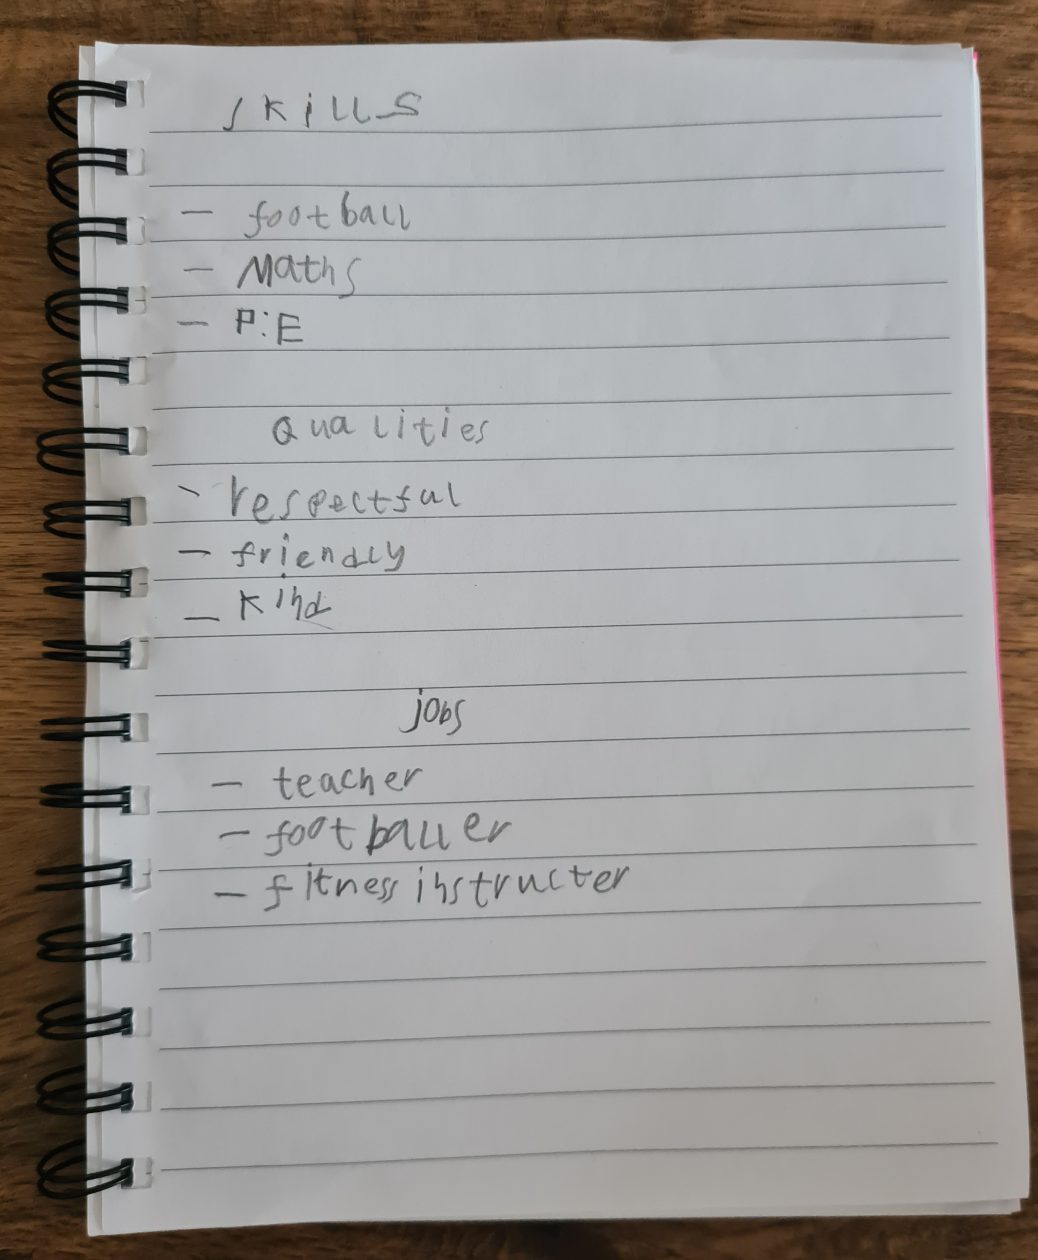 skills
- football
- Maths
- P:E
Qualities
- respectful
- friendly
- kind
jobs
- teacher
- footballer
- fitness instructer